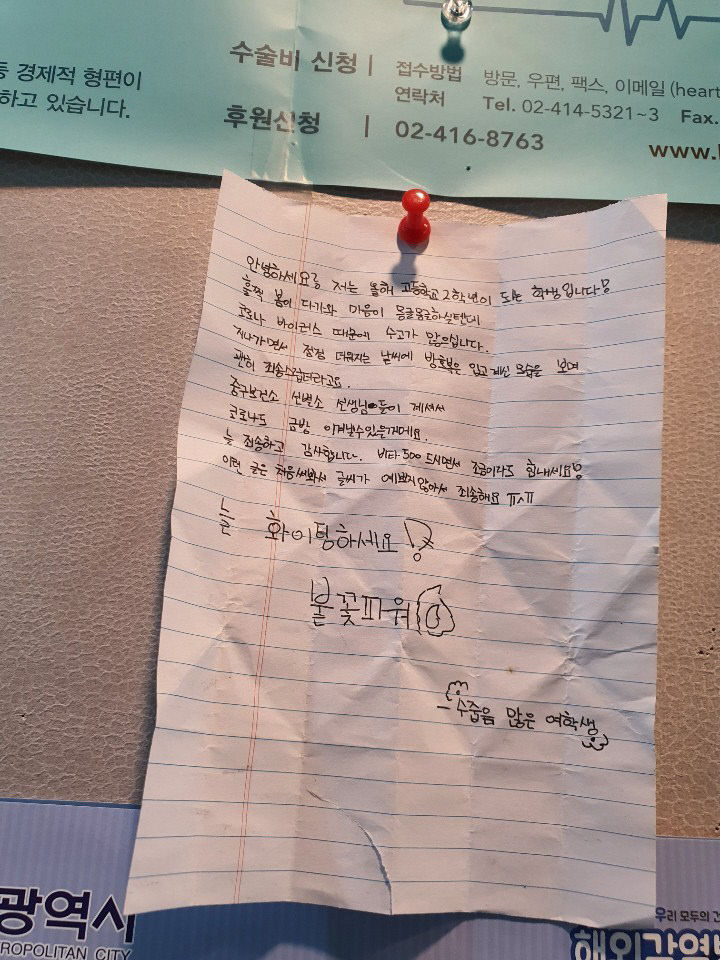 등 경제적 형편이
하고 있습니다.
수술비 신청 | 접수방법 방문, 우편, 팩스, 이메일 (heart
연락처 Tel. 02-414-5321~3 Fax.
후원신청 | 02-416-8763
www.
안녕하세요? 저는 올해 고등학교 2학년이 되는 학생입니다!
훌쩍 봄이 다가와 마음이 몽글몽글하실텐데
코로나 바이러스 때문에 수고가 많으십니다.
지나가면서 점점 더워지는 날씨에 방호복은 입고 계신 모습을 보며
괜히 죄송스럽더라고요.
중구보건소 선별소 선생님들이 계셔서
코로나도 금방 이겨낼수있는거예요.
늘 죄송하고 감사합니다. 비타500 드시면서 조금이라도 힘내세요!
이런 글은 처음써봐서 글씨가 예쁘지않아서 죄송해요 ㅠㅅㅠ
늘 화이팅하세요!
불꽃파워
- 수줍음 많은 여학생
광역시
ROPOLITAN CITY
우리 모두의 건
해외감염병